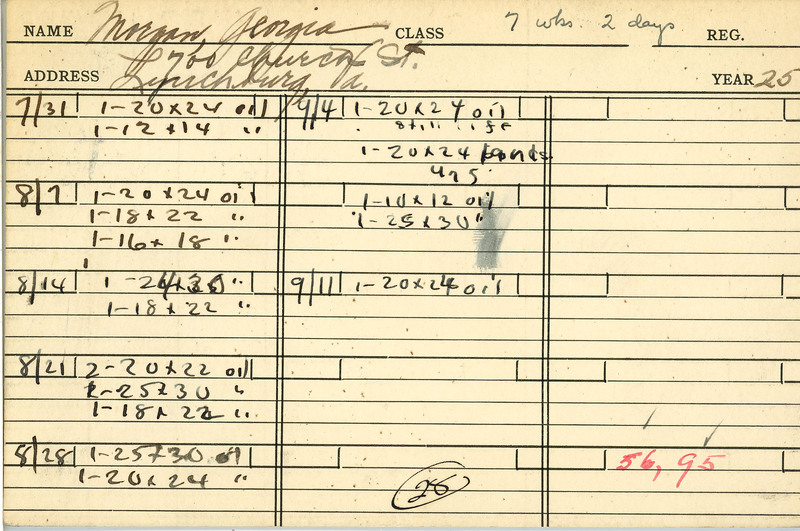 NAME Morgan, Georgia CLASS 7 wks. 2 days REG.
2700 Church St.
ADDRESS Lynchburg, Va. YEAR 25
7/31 1-20x24 oil
1-12x14 "
8/7 1-20x24 oil
1-18x22 "
1-16x18 "
8/14 1- "
1-18x22 "
8/21 2-20x22 oil
2-25x30 "
1-18x22 "
8/28 1-25x30 oil
1-20x24 "
9/4 1-20x24 oil
still life
1-20x24
1-10x12 oil
1-25x30 "
9/11 1-20x24 oil
28
56, 95